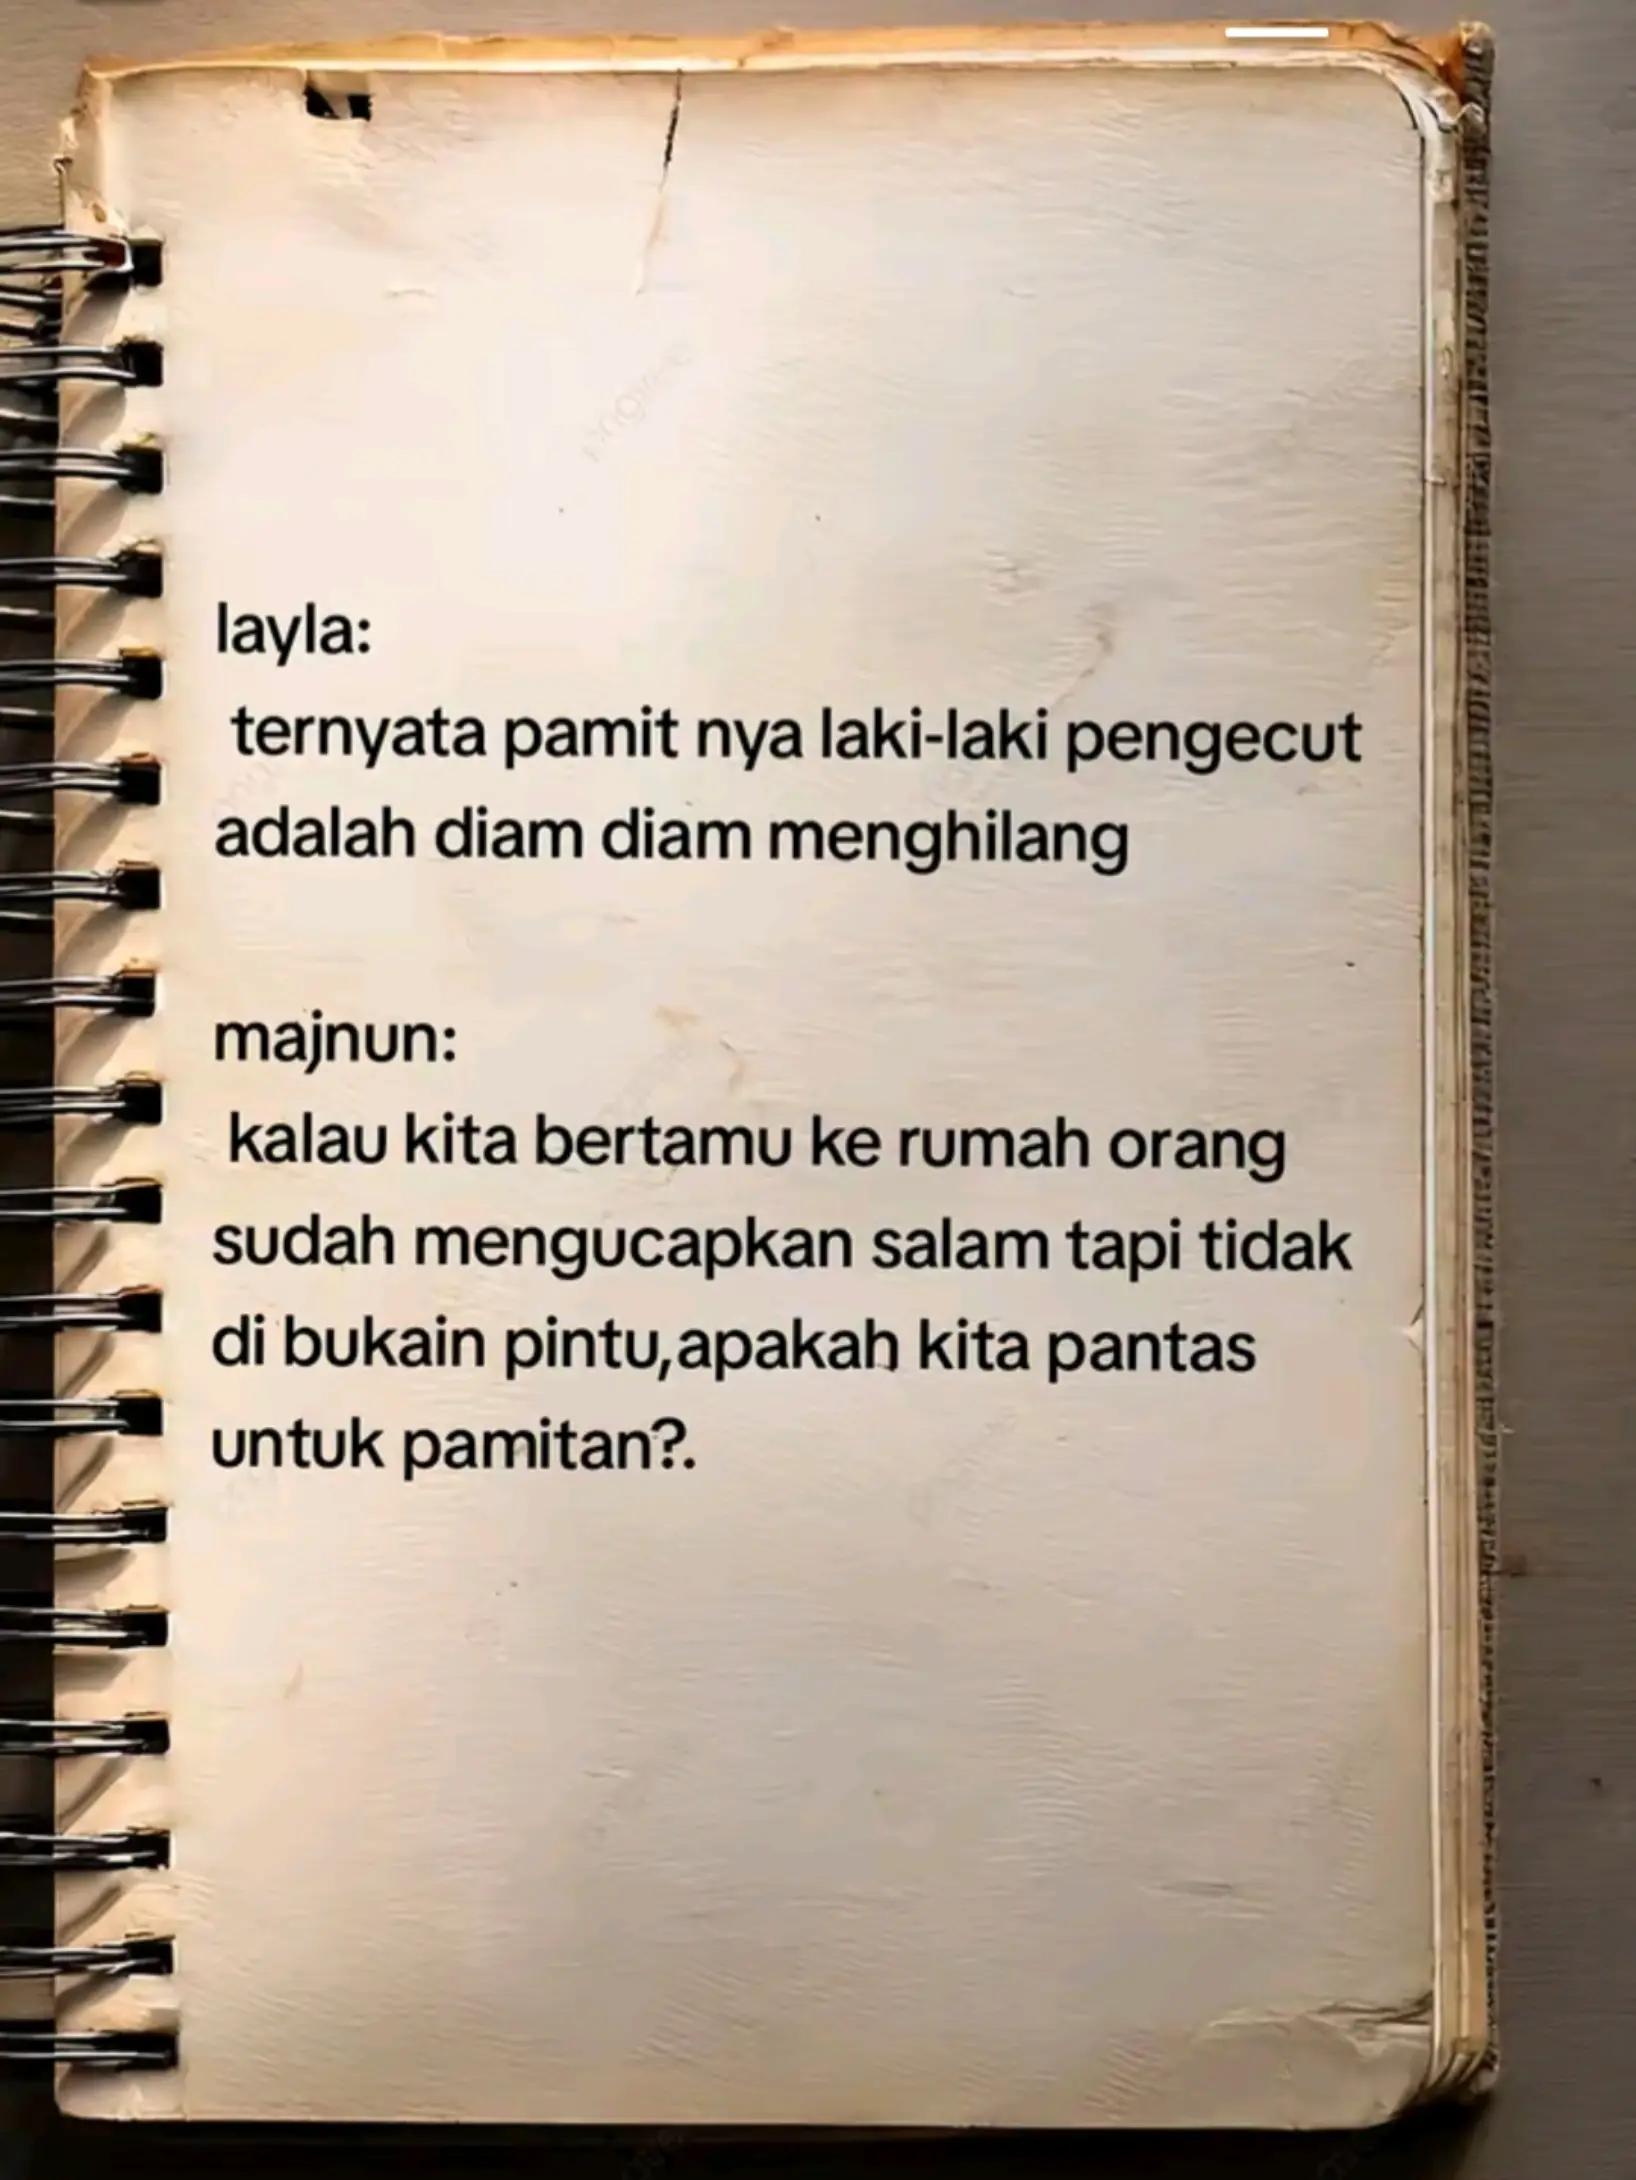 layla:
ternyata pamit nya laki-laki pengecut
adalah diam diam menghilang
majnun:
kalau kita bertamu ke rumah orang
sudah mengucapkan salam tapi tidak
di bukain pintu,apakah kita pantas
untuk pamitan?.